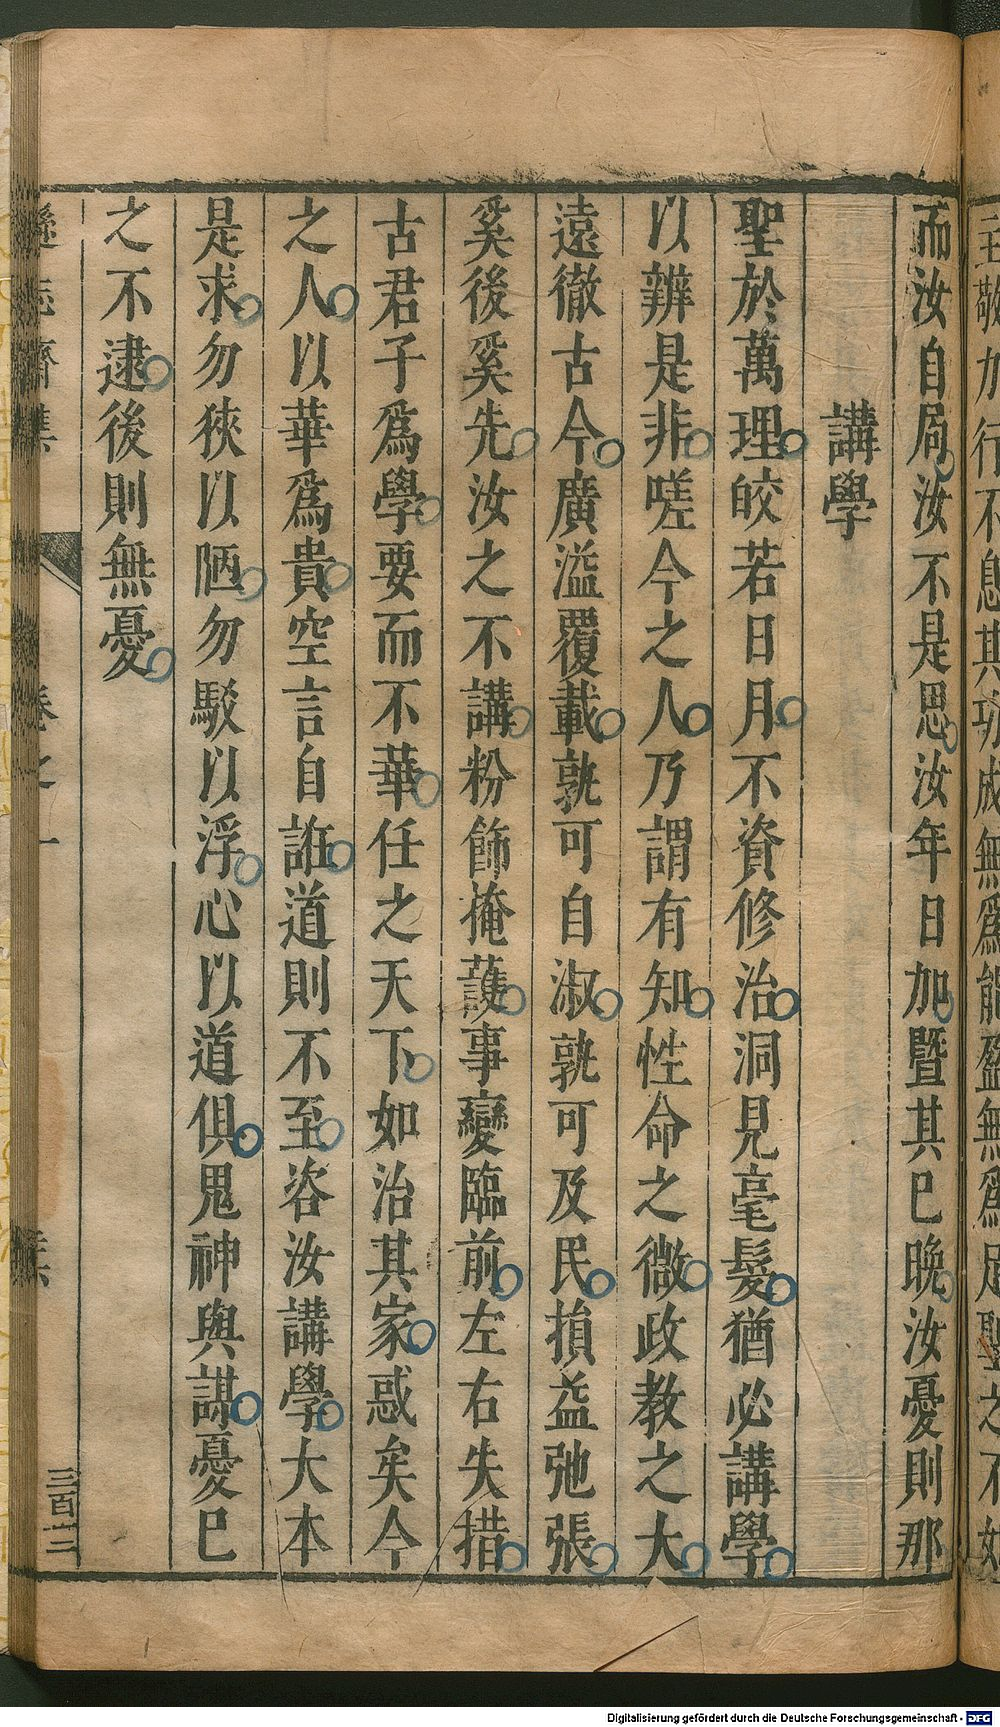 主敬加行不怠其功成無爲能盈無爲足聖之不如
而汝自局汝不是思汝年日加暨其已晚汝憂則那
講學
聖於萬理皎若日月不資修治洞見毫髮猶必講學
以辨是非嗟今之人乃謂有知性命之微政教之大
遠徹古今廣溢覆載孰可自淑孰可及民損益弛張
奚後奚先汝之不講粉飾掩護事變臨前左右失措
古君子爲學要而不華任之天下如治其家惑矣今
之人以華爲貴空言自誑道則不至咨汝講學大本
是求勿狹以陋勿駁以浮心以道俱鬼神與謀憂已
之不逮後則無憂
遜志齋集
卷之一
三百二
Digitalisierung gefördert durch die Deutsche Forschungsgemeinschaft - DFG